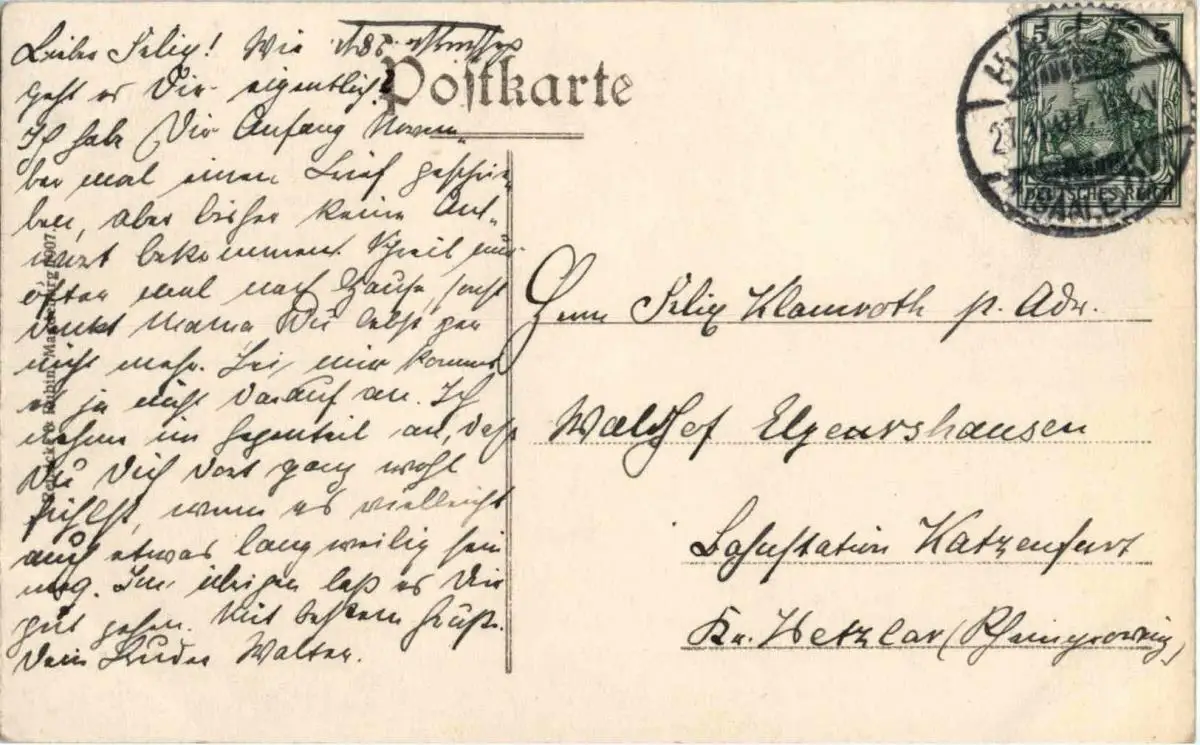 Lieber Felix! Wie
geht es Dir eigentlich?
Ich habe Dir Anfang Novem-
ber mal einen Brief geschrie-
ben, aber bisher keine Ant-
wort bekommen. Schreib nur
öfter mal nach Hause, sonst
denkt Mama Du lebst gar
nicht mehr. Bei mir kommt
es ja nicht darauf an. Ich
nehme im Gegenteil an, daß
Du Dich dort ganz wohl
fühlst, wenn es vielleicht
auch etwas langweilig sein
mag. Im übrigen laß es Dir
gut gehen. Mit bestem Gruß.
Dein Bruder Walter.
Postkarte
5 5
DEUTSCHES REICH
HALLE
(SAALE)
Herrn Felix Klamroth p. Adr.
Waldhof Elgershausen
Bahnstation Katzenfurt
Kr. Wetzlar (Rheinprovinz)